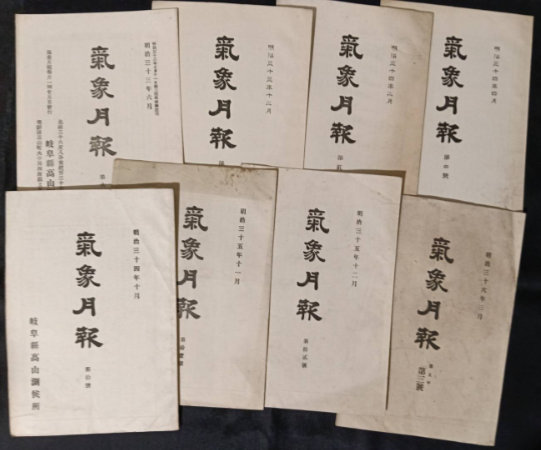 明治三十三年六月
氣象月報
岐阜縣高山
明治三十三年十二月
氣象月報
明治三十四年二月
氣象月報
明治三十四年四月
氣象月報
第四號
明治三十四年十月
氣象月報
第拾號
岐阜縣高山測候所
明治三十五年十一月
氣象月報
第拾壹號
明治三十五年十二月
氣象月報
第拾貳號
明治三十六年三月
氣象月報
第三號